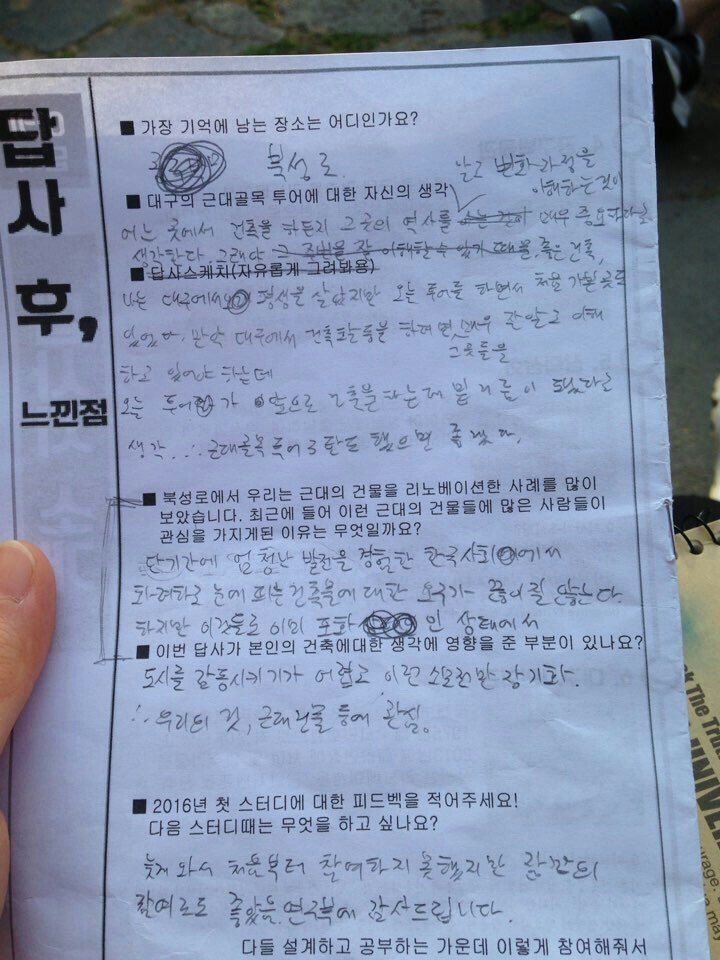 답
사
후,
느낀점
■ 가장 기억에 남는 장소는 어디인가요?
북성로. 알고 변화과정을
이해하는것이
■ 대구의 근대골목 투어에 대한 자신의 생각
어느 곳에서 건축을 하든지 그 곳의 역사를 매우 중요하다고
생각한다. 그래야 그 주변을 잘 이해할 수 있기 때문 좋은 건축,
■ 답사스케치(자유롭게 그려봐용)
나는 대구에서 평생을 살았지만 오늘 투어를 하면서 처음 가본 곳도
있었다. 만약 대구에서 건축활동을 하려면 매우 잘 알고 이해
그곳들을
하고 있어야 하는데
오늘 투어가 앞으로 건축을 하는데 밑거름이 됐다고
생각. ∴ 근대골목투어 3탄도 했으면 좋겠다.
■ 북성로에서 우리는 근대의 건물을 리노베이션한 사례를 많이
보았습니다. 최근에 들어 이런 근대의 건물들에 많은 사람들이
관심을 가지게된 이유는 무엇일까요?
단기간에 엄청난 발전을 경험한 한국사회에서
화려하고 눈에 띄는 건축물에 대한 요구가 끊이질 않는다.
하지만 이것들로 이미 포화인 상태에서
■ 이번 답사가 본인의 건축에대한 생각에 영향을 준 부분이 있나요?
도시를 감동시키기가 어렵고 이런 소모전만 장기화.
∴ 우리의 것, 근대건물 등에 관심.
■ 2016년 첫 스터디에 대한 피드벡을 적어주세요!
다음 스터디때는 무엇을 하고 싶나요?
늦게 와서 처음부터 참여하지 못했지만 잠깐의
참여로도 좋았음. 연구부에 감사드립니다.
다들 설계하고 공부하는 가운데 이렇게 참여해줘서
ck The Tru
UNIVE
urage,
may